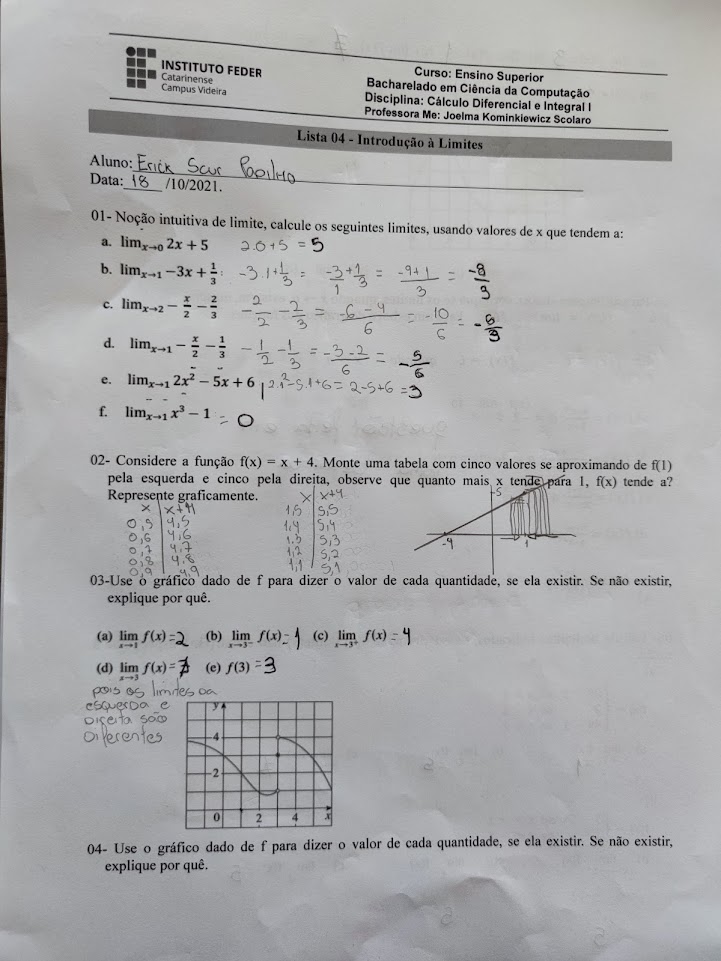 INSTITUTO FEDER
Catarinense
Campus Videira
Curso: Ensino Superior
Bacharelado em Ciência da Computação
Disciplina: Cálculo Diferencial e Integral I
Professora Me: Joelma Kominkiewicz Scolaro
Lista 04 - Introdução à Limites
Aluno: Erick Scur
Data: 18 /10/2021.
01- Noção intuitiva de limite, calcule os seguintes limites, usando valores de x que tendem a:
a. lim x→0 2x + 5 2.0+5 = 5
b. lim x→1 −3x + 1/3: -3.1+1/3 = -3/1+1/3 = -9+1/3 = -8/3
c. lim x→2 − x/2 − 2/3 -2/2 -2/3 = -6-4/6 = -10/6 = -5/3
d. lim x→1 − x/2 − 1/3 -1/2 -1/3 = -3-2/6 = -5/6
e. lim x→1 2x² − 5x + 6 | 2.1²-5.1+6 = 2-5+6 = 3
f. lim x→1 x³ − 1 = 0
02- Considere a função f(x) = x + 4. Monte uma tabela com cinco valores se aproximando de f(1)
pela esquerda e cinco pela direita, observe que quanto mais x tende para 1, f(x) tende a?
Represente graficamente.
x | x+4 x | x+4
0,5 | 4,5 1,5 | 5,5
0,6 | 4,6 1,4 | 5,4
0,7 | 4,7 1,3 | 5,3
0,8 | 4,8 1,2 | 5,2
0,9 | 4,9 1,1 | 5,1
5
-4 1
03-Use o gráfico dado de f para dizer o valor de cada quantidade, se ela existir. Se não existir,
explique por quê.
(a) lim x→1 f(x) = 2 (b) lim x→3⁻ f(x) = 1 (c) lim x→3⁺ f(x) = 4
(d) lim x→3 f(x) = ∄ (e) f(3) = 3
pois os limites da
esquerda e
direita são
diferentes
y
4
2
0 2 4 x
04- Use o gráfico dado de f para dizer o valor de cada quantidade, se ela existir. Se não existir,
explique por quê.